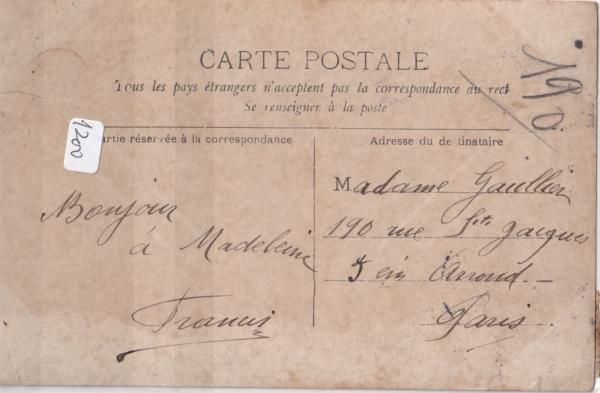 CARTE POSTALE
Tous les pays étrangers n'acceptent pas la correspondance au rect
Se renseigner à la poste
artie réservée à la correspondance
Adresse du de tinataire
190
1200
Bonjour
à Madeleine
Francis
Madame Gaullier
190 rue St Jacques
5 em Arrond.
Paris